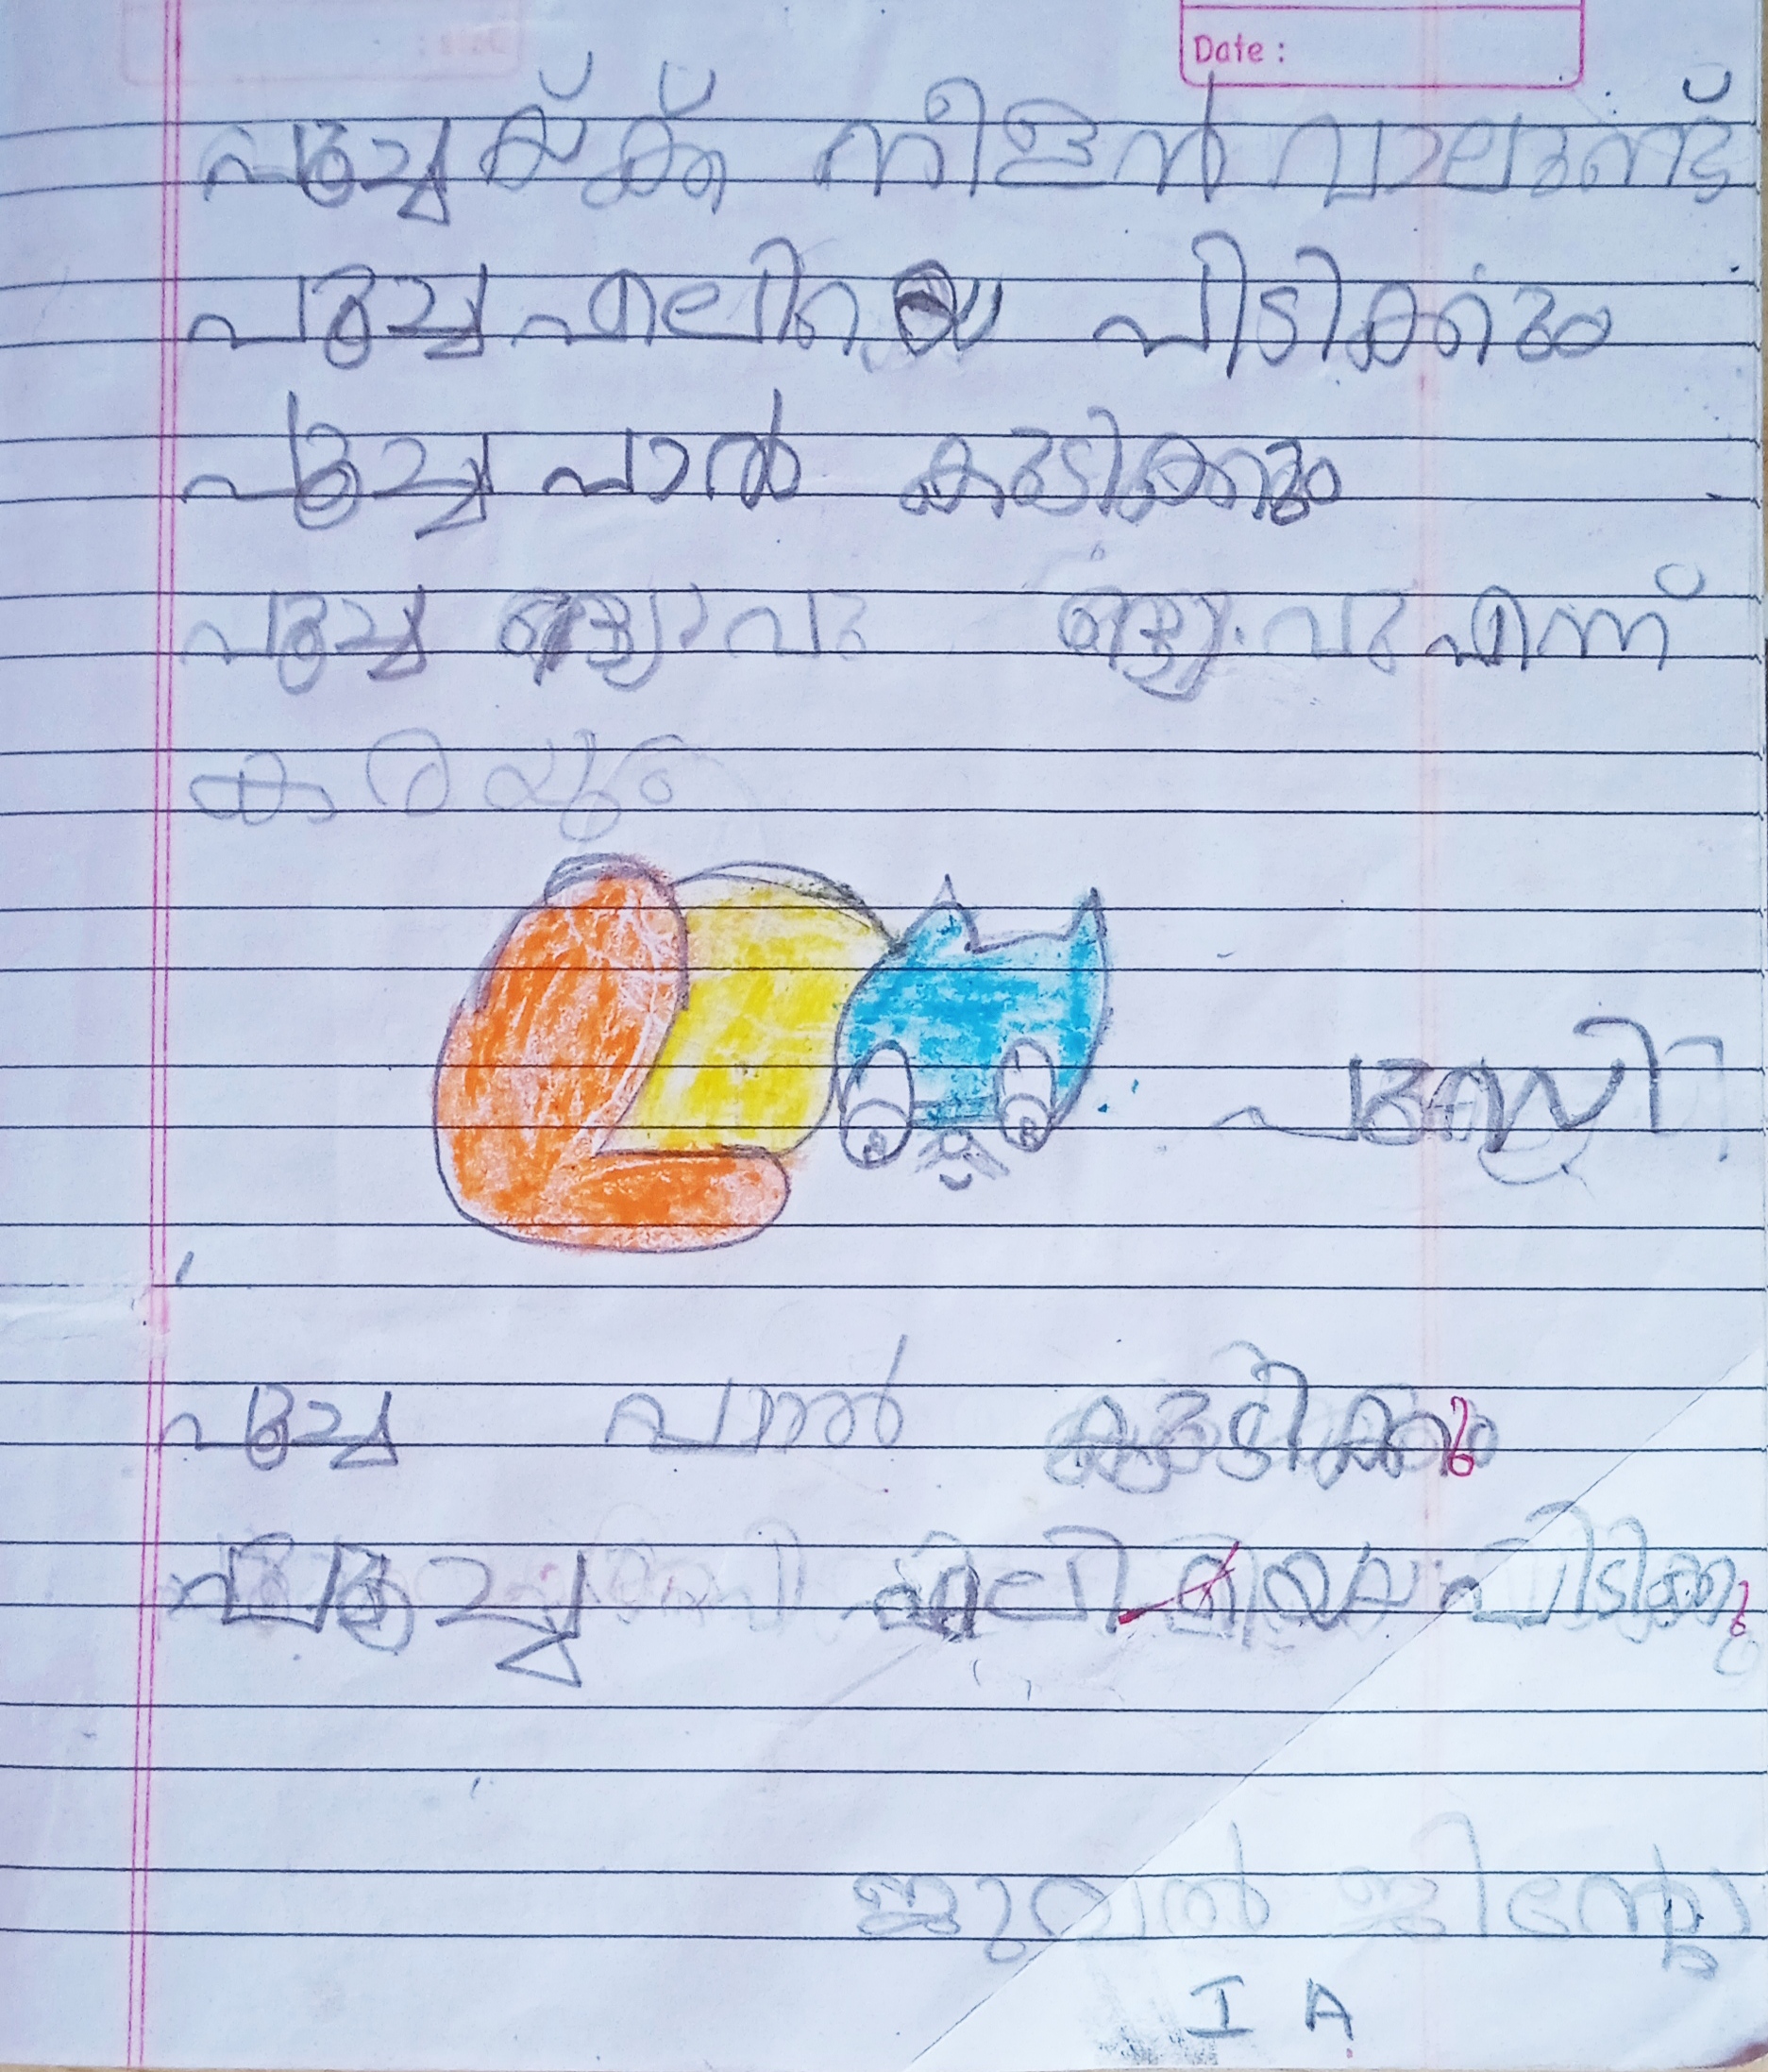 Date :
പൂച്ചയ്ക്ക് നീളൻ വാലുണ്ട്
പൂച്ച എലിയെ പിടിക്കും
പൂച്ച പാൽ കുടിക്കും
പൂച്ച മ്യാവു മ്യാവു എന്ന്
കരയും
പൂച്ച പാൽ കുടിക്കും
പൂച്ച എലിയെ പിടിക്കു
I A